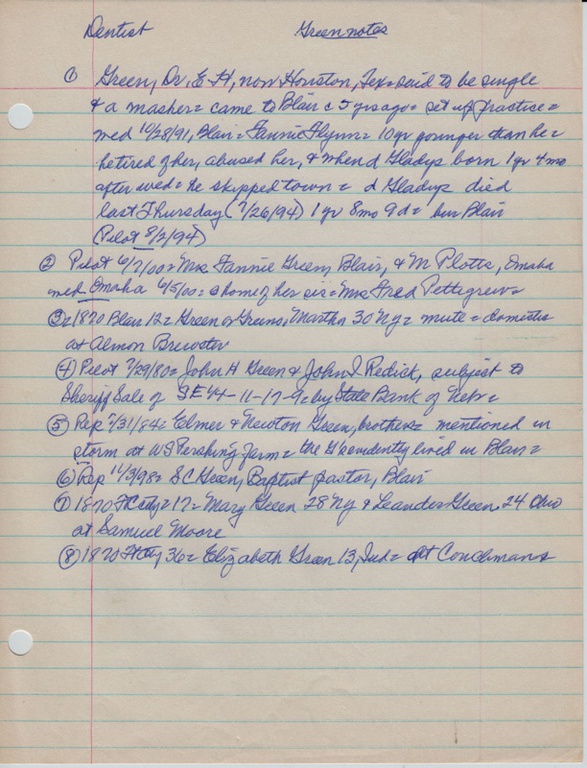 Dentist Green notes
① Green, Dr. E H, now Houston, Tex = said to be single
& a masher = came to Blair c 5 yrs ago = set up practice =
med 10/28/91, Blair = Fannie Flynn = 10 yr younger than he =
he tired of her, abused her, & when d Gladys born 1 yr 4 mo
after wed = he skipped town = d Gladys died
last Thursday (7/26/94) 1 yr 8mo 9d = bur Blair
(Pilot 8/2/94)
② Pilot 6/7/00 = Mrs Fannie Green, Blair, & M Plotts, Omaha
med Omaha 6/5/00 = @ home of her sis = Mrs Fred Pettegrew =
③ = 1870 Blair 12 = Green or Greno, Martha 30 NY = mute = domestic
at Almon Brewster
④ Pilot 7/29/80 = John H Green & John I Redick, subject to
Sheriff Sale of SE 1/4-11-17-9 = by State Bank of Nebr =
⑤ Rep 5/31/94 = Elmer & Newton Green, brothers = mentioned in
storm at WS Pershing farm = the G's evidently lived in Blair =
⑥ Rep 11/3/98 = SC Green, Baptist pastor, Blair
⑦ 1870 Ft Cal 17 = Mary Green 28 NY & Leander Green 24 Ohio
at Samuel Moore
⑧ 1870 36 = Elizabeth Green 13, Ind = at